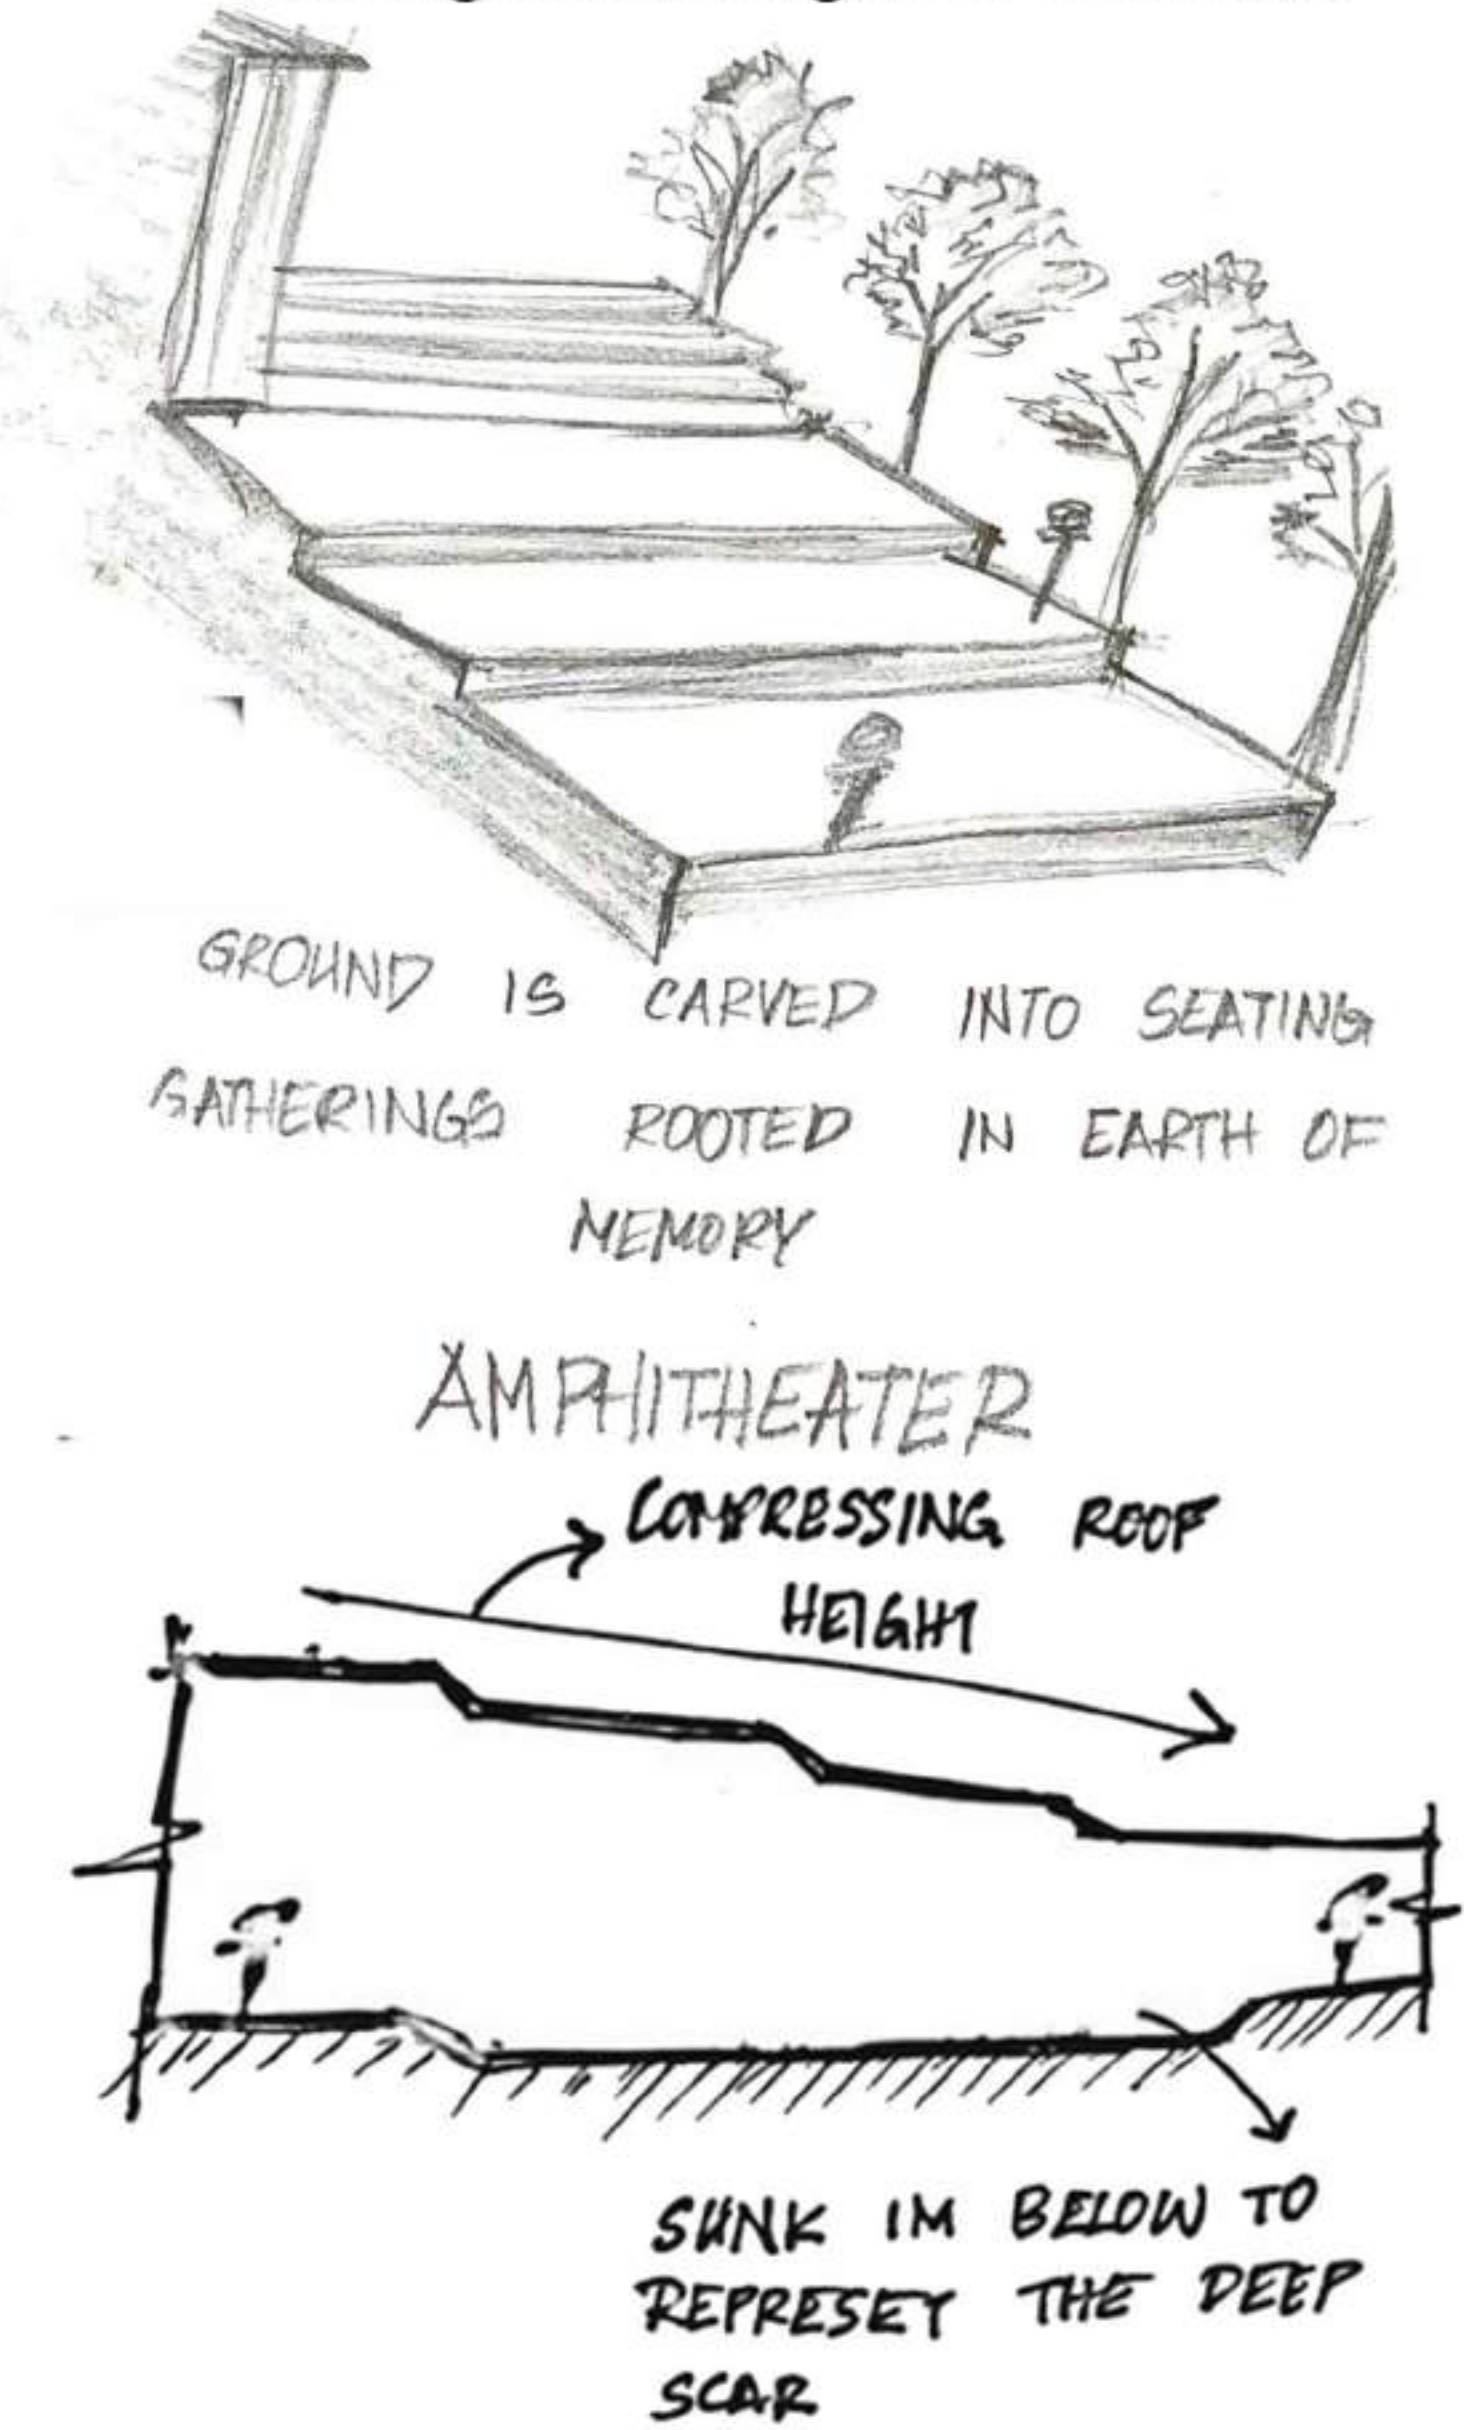 GROUND IS CARVED INTO SEATING
GATHERINGS ROOTED IN EARTH OF
MEMORY
AMPHITHEATER
COMPRESSING ROOF
HEIGHT
SUNK 1M BELOW TO
REPRESEY THE DEEP
SCAR